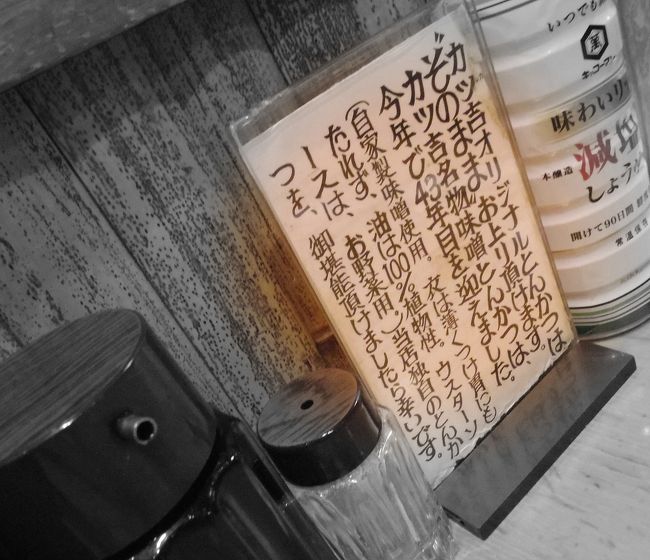 カツ吉オリジナルとんかつは
"そのまま"お上り頂けます。
カツ吉名物味噌とんかつは、
今年で43年目を迎えました。
(自家製味噌使用。衣は薄くつけ胃にも
たれず、油は100%植物性。ウスターソ
ースは、お野菜用)当店独自のとんか
つを、御堪能頂けましたら幸いです。
いつでも
萬
キッコーマン
味わいリッ
本醸造
減塩
しょうゆ
開けて90日間
常温保存